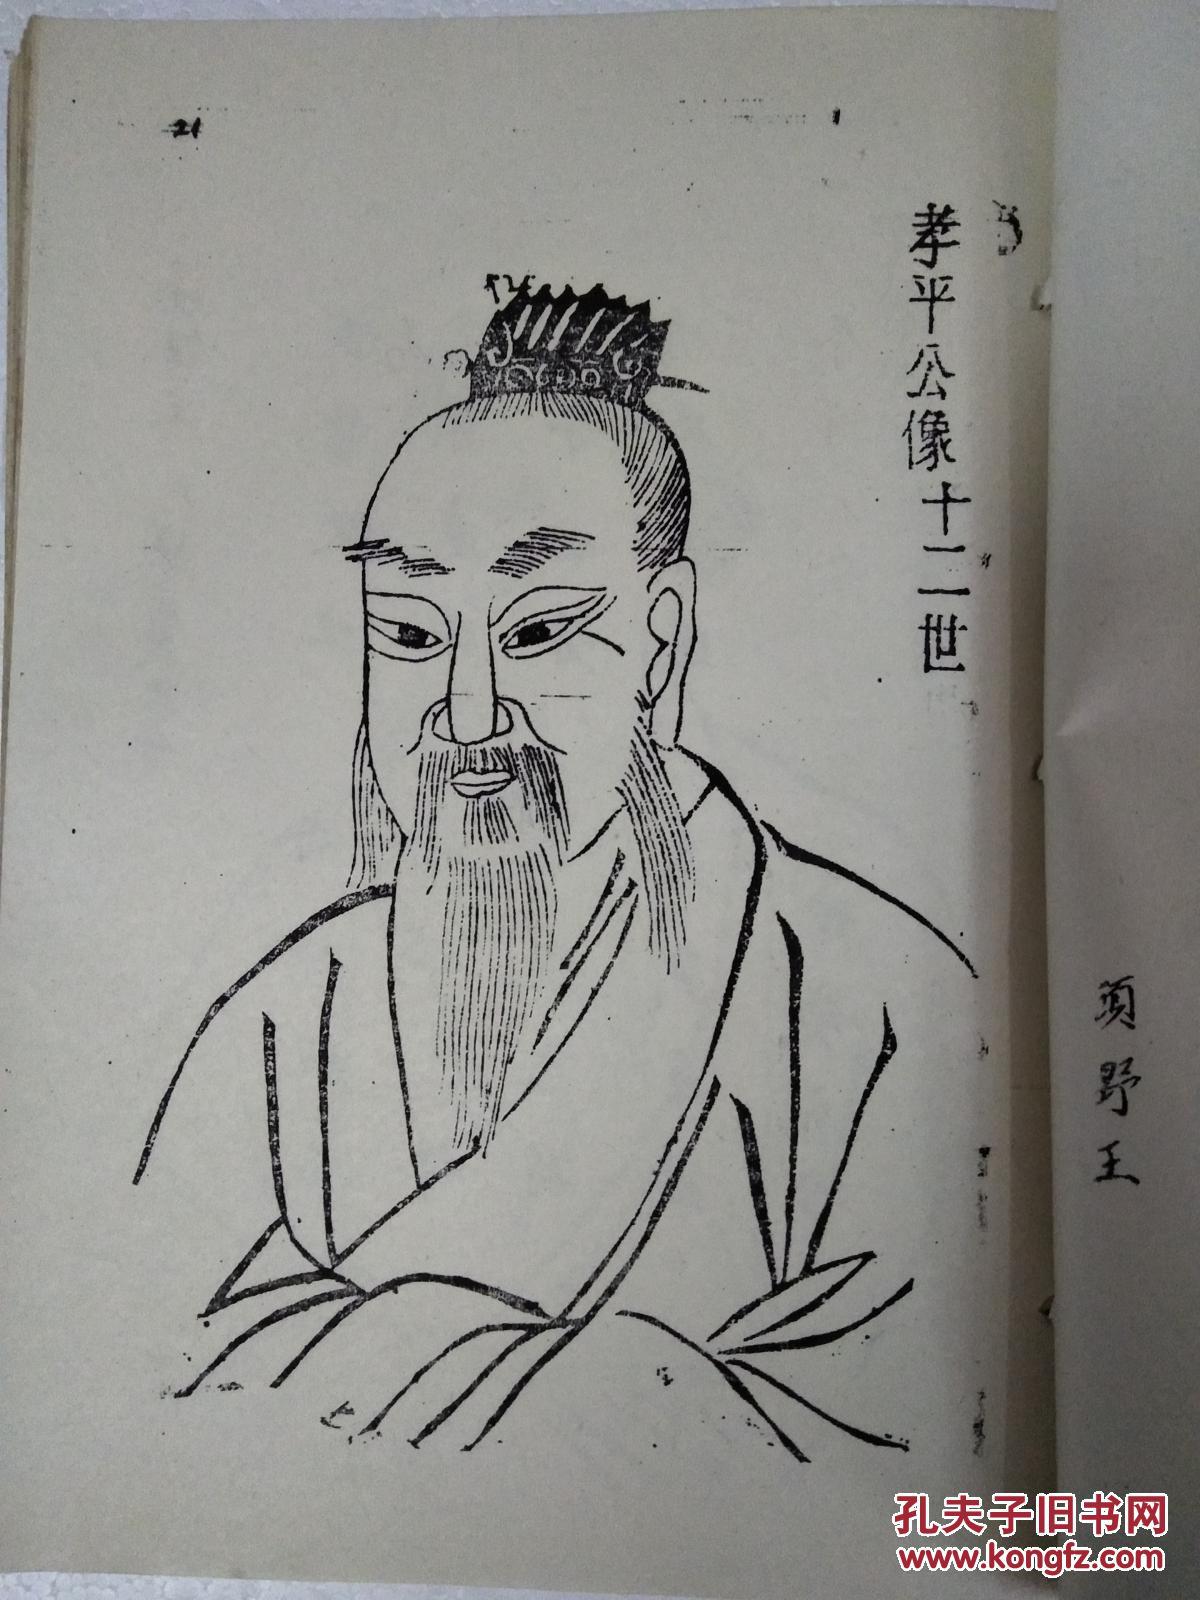 孝平公像十二世
21
1
须野王
孔夫子旧书网
www.kongfz.com